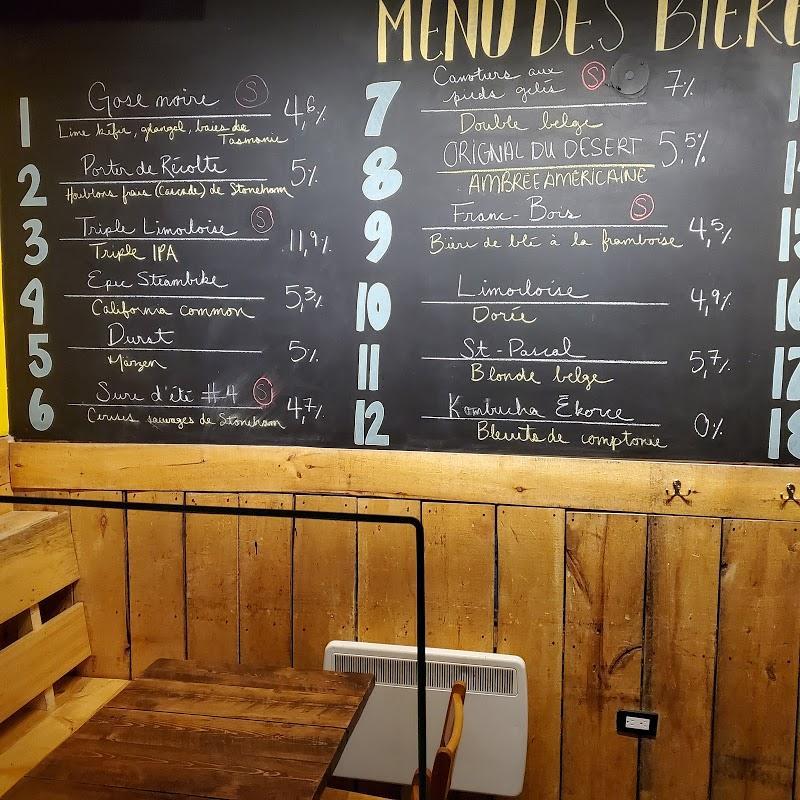 MENU DES BIÈRE
1 Gose noire S 4,6%
Lime kéfir, galangal, baies de
Tasmanie
2 Porter de Récolte 5%
Houblons frais (Cascade) de Stoneham
3 Triple Limoiloise S 11,9%
Triple IPA
4 Epic Steambike 5,3%
California common
5 Durst 5%
Märzen
6 Sure d'été #4 S 4,7%
Cerises sauvages de Stoneham
7 Canotiers aux S 7%
pieds gelés
Double belge
8 ORIGNAL DU DESERT 5,5%
AMBRÉE AMÉRICAINE
9 Franc-Bois S 4,5%
Bière de blé à la framboise
10 Limoiloise 4,9%
Dorée
11 St-Pascal 5,7%
Blonde belge
12 Kombucha Ekorce 0%
Bleuits de comptonie
1
14
15
16
17
18